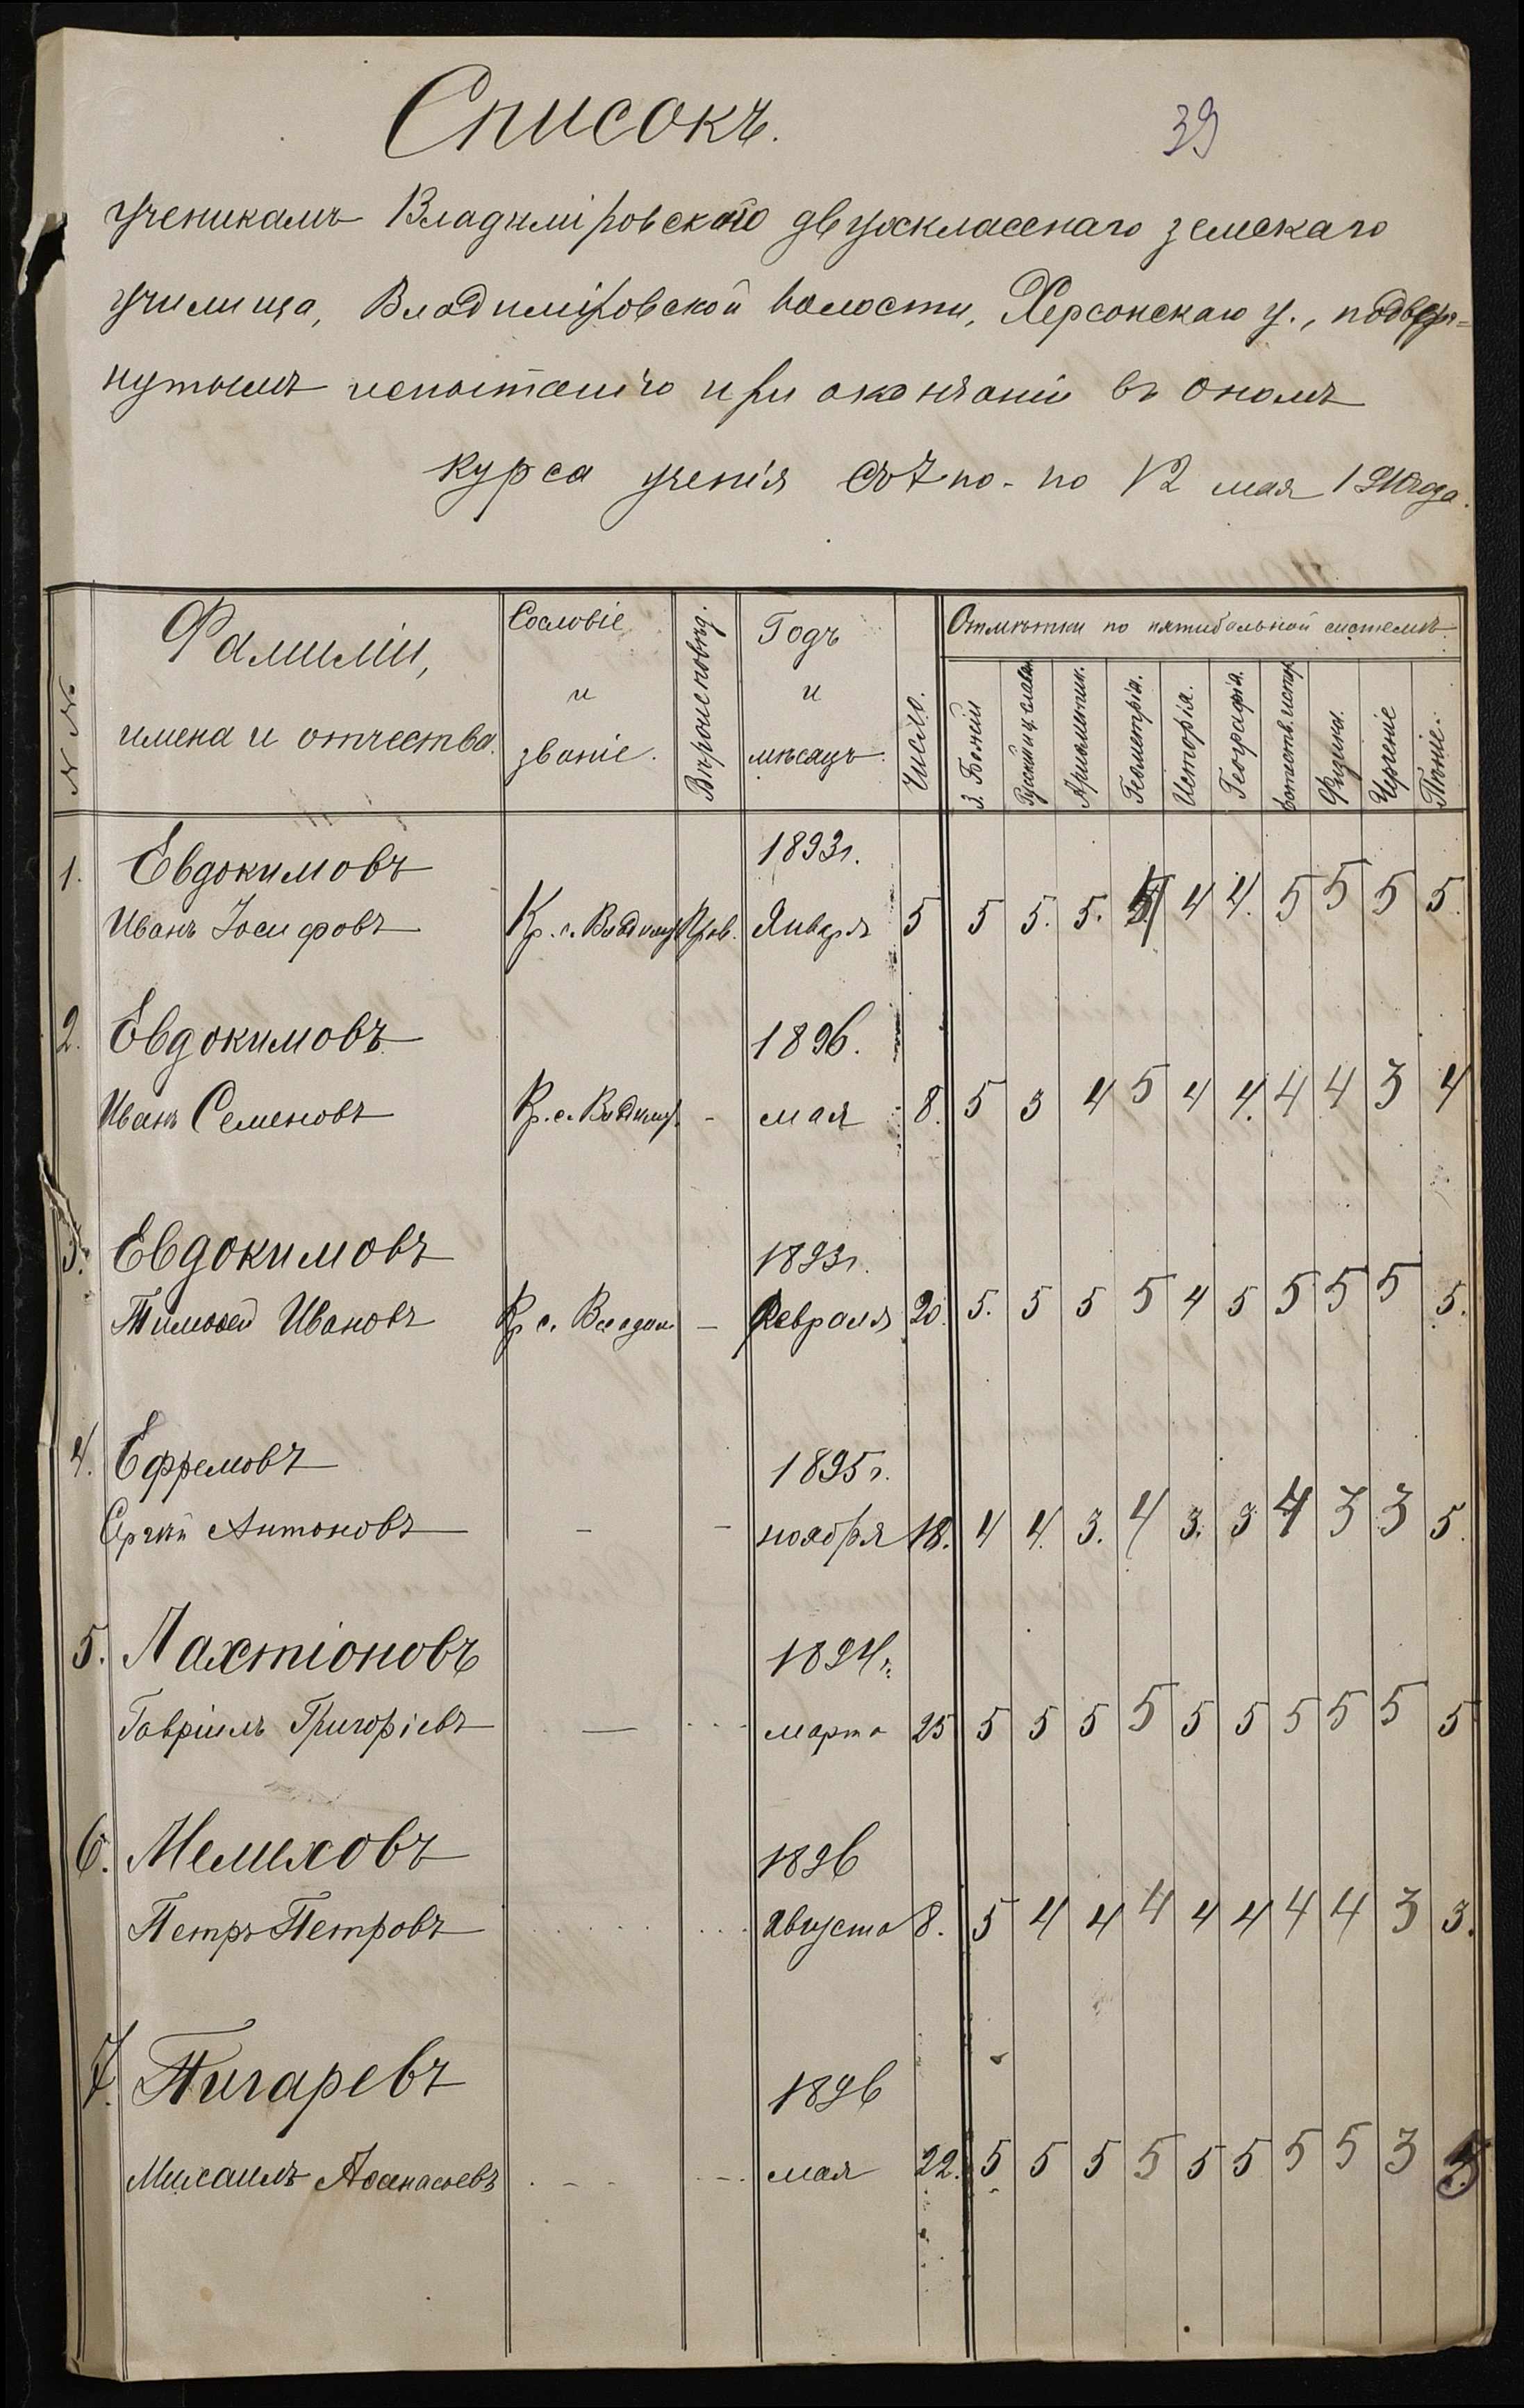 Списокъ.
39
ученикамъ Владиміровскаго двухкласснаго земскаго
училища, Владиміровской волости, Херсонскаго у., подверг-
нутымъ испытанію при окончаніи въ ономъ
курса ученія съ 7 по - по 12 мая 1910 года.
N N Фамиліи, имена и отчества. Сословіе и званіе. Вѣроисповѣд. Годъ и мѣсяцъ. Число. Отмѣтки по пятибальной системѣ
З. Божій Русскій и ц. слав. Ариѳметик. Геометрія. Исторія. Географія. Естеств. истор. Физика. Черченіе Пѣніе.
1. Евдокимовъ 1893 г.
Иванъ Іосифовъ Кр. с. Владимір Прав. Января 5 5 5. 5. 4 4. 5 5 5 5.
2. Евдокимовъ 1896.
Иванъ Семеновъ Кр. с. Владимір. - мая 8. 5 3 4 5 4 4. 4 4 3 4
3. Евдокимовъ 1893 г.
Тимоѳей Ивановъ Кр с. Владим — февраля 20. 5. 5 5 5 4 5 5 5 5 5.
4. Ефремовъ 1895 г.
Сергѣй Антоновъ — — ноября 18. 4 4. 3. 4 3. 3 4 3 3 5.
5. Лахтіоновъ 1894 г.
Гавріилъ Григорьевъ — марта 25 5 5 5 5 5 5 5 5 5 5
6. Мелиховъ 1896
Петръ Петровъ августа 8. 5 4 4 4 4 4 4 4 3 3.
7. Пигаревъ 1896
Михаилъ Аѳанасьевъ - - - мая 22. 5 5 5 5 5 5 5 5 3